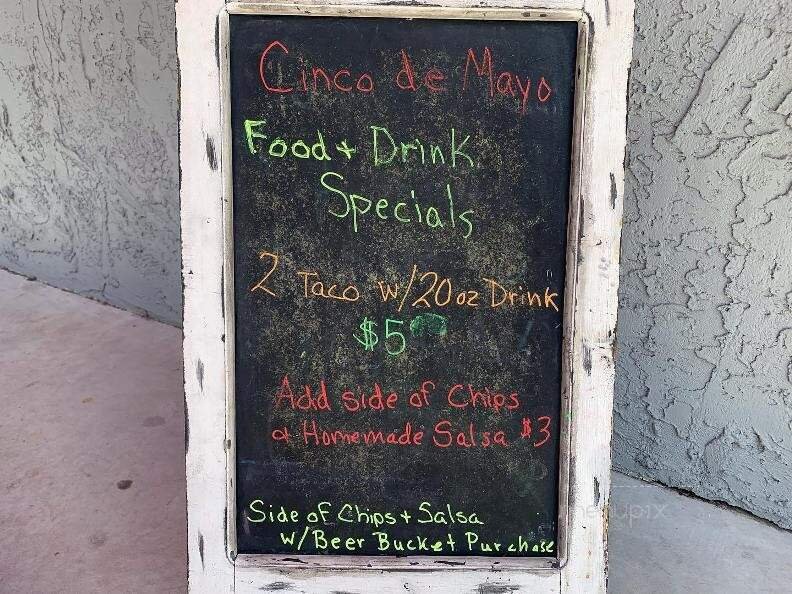 Cinco de Mayo
Food + Drink
Specials
2 Taco w/20 oz Drink
$5⁰⁰
Add side of Chips
& Homemade Salsa $3
Side of Chips + Salsa
w/Beer Bucket Purchase